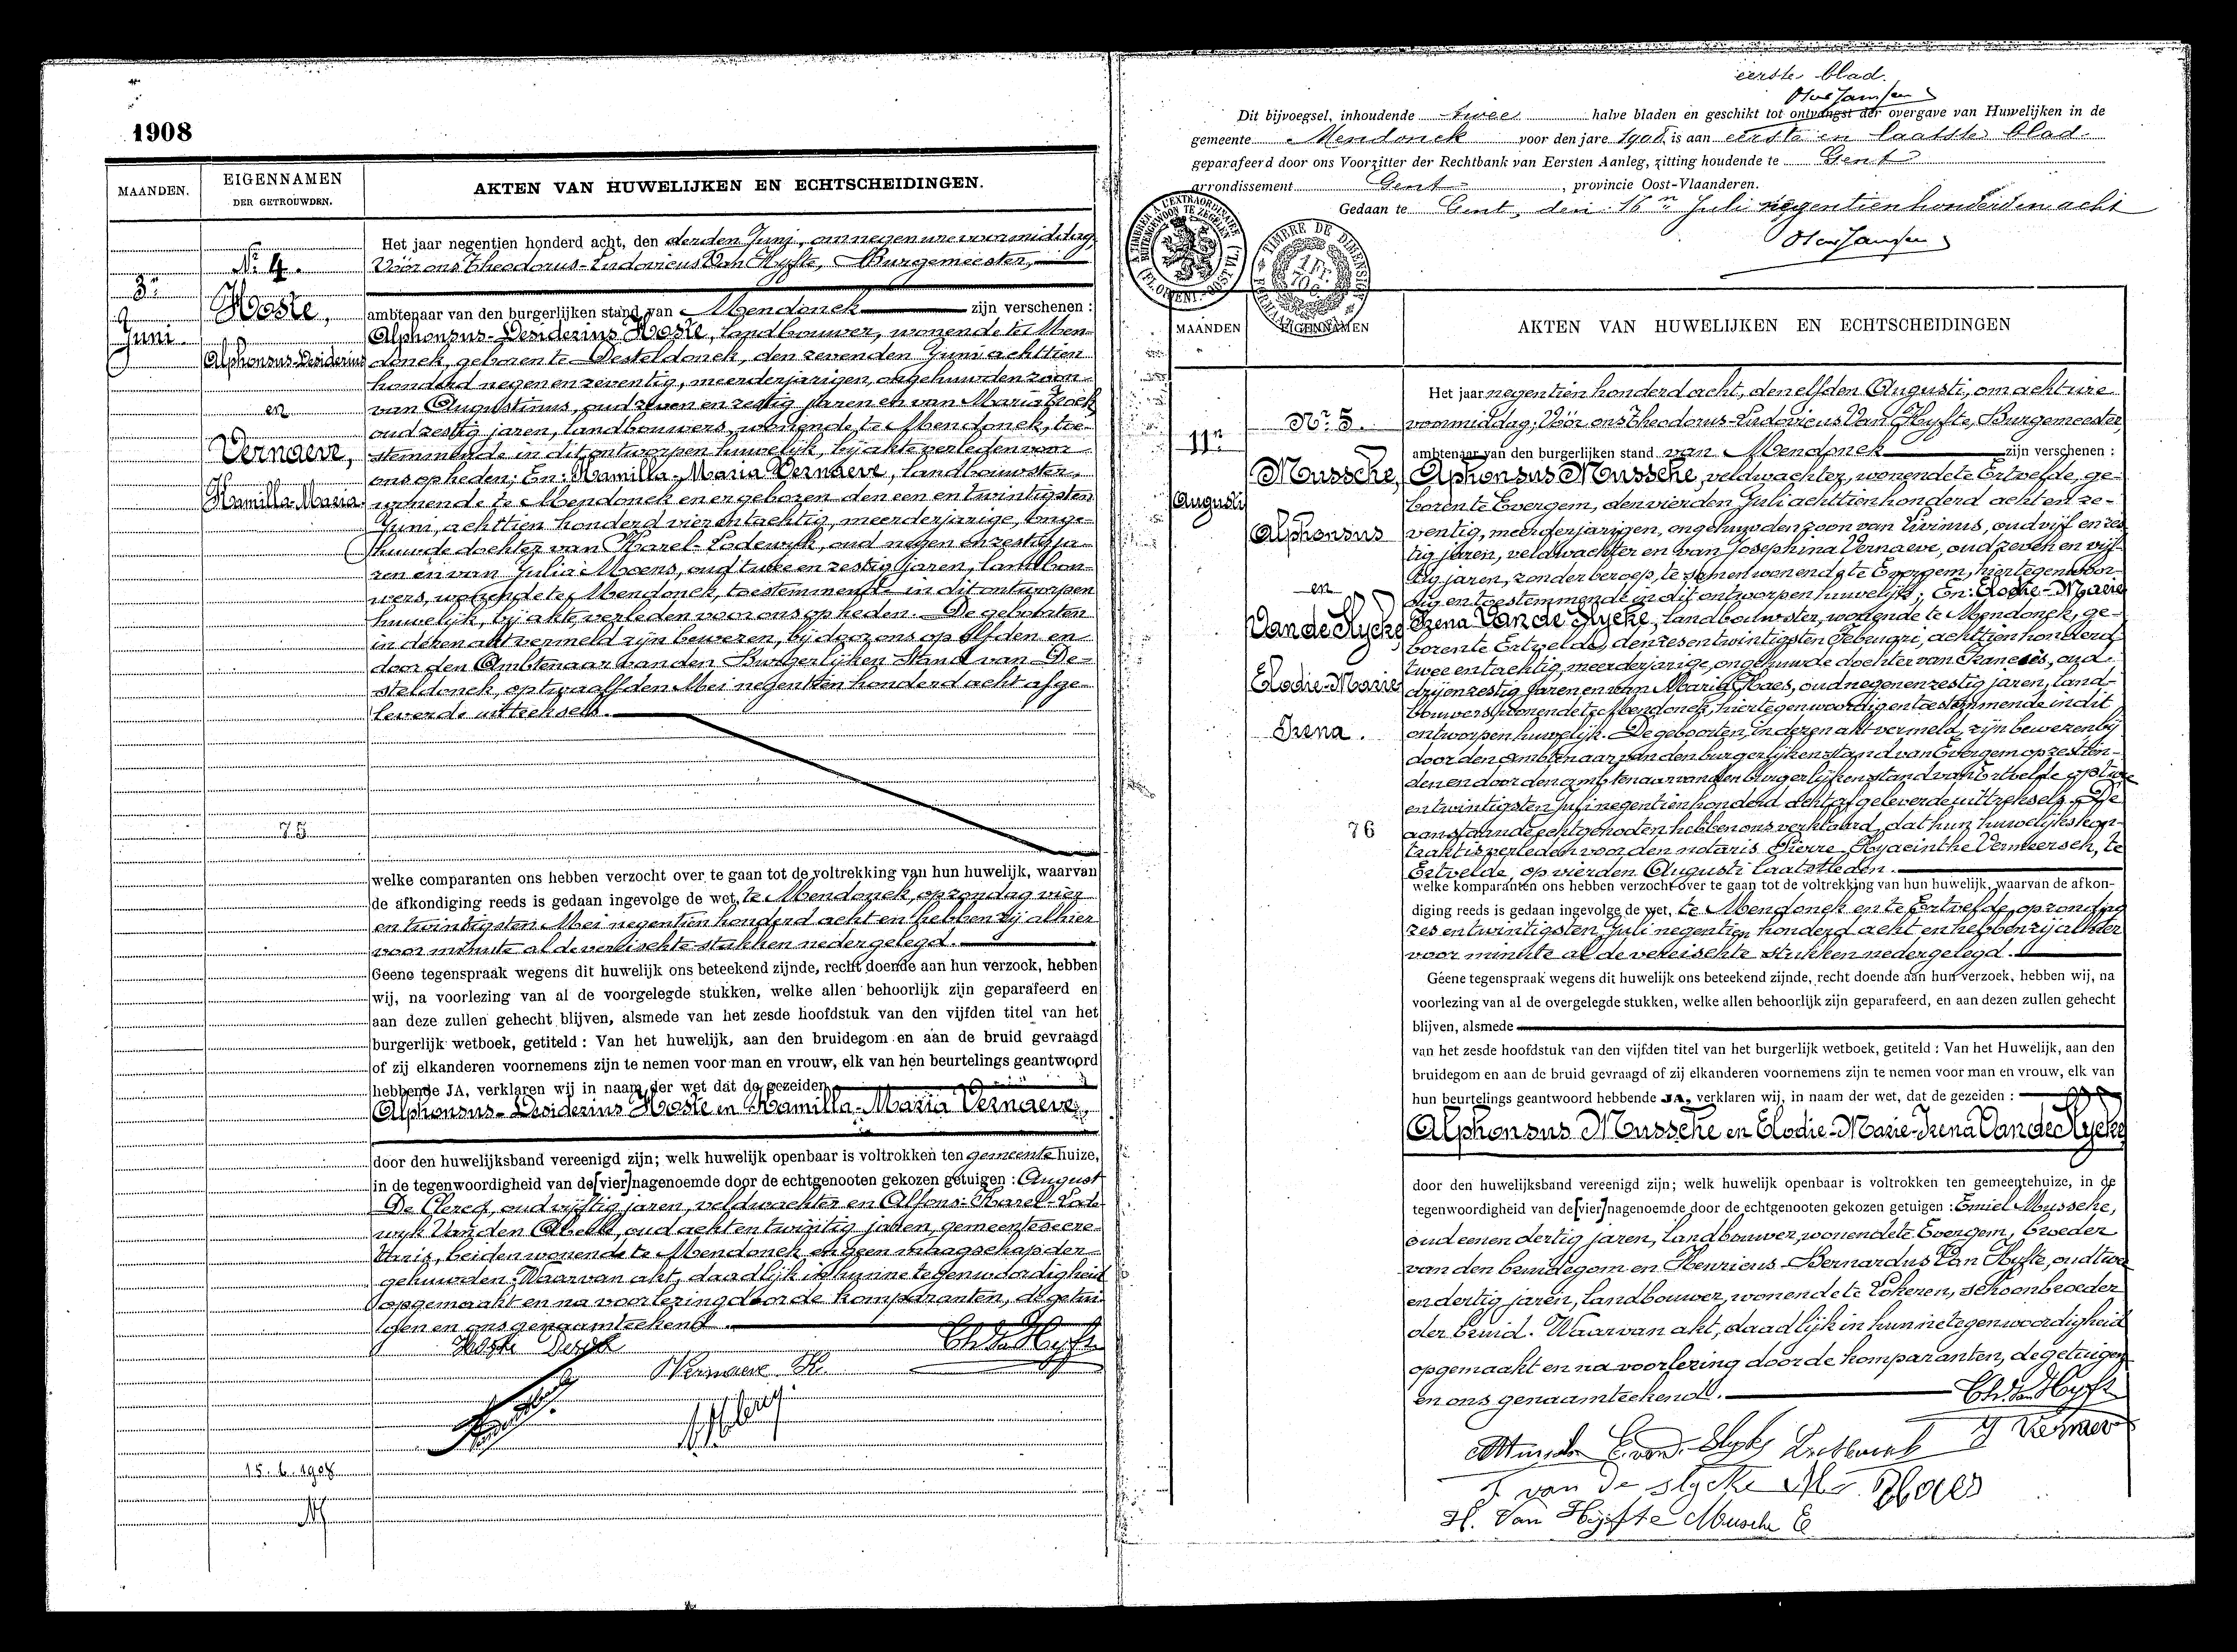 1908
MAANDEN.
EIGENNAMEN
DER GETROUWDEN.
AKTEN VAN HUWELIJKEN EN ECHTSCHEIDINGEN.
3n
Juni.
Nr 4.
Hoste,
Alphonsus-Desiderius
en
Vernaeve,
Kamilla-Maria
75
15.6.1908
Het jaar negentien honderd acht, den derden Juni, om negen ure voormiddag
Vóór ons Theodorus-Ludovicus Van Hyfte, Burgemeester,
ambtenaar van den burgerlijken stand van Mendonck zijn verschenen :
Alphonsus-Desiderius Hoste, landbouwer, wonende te Men-
donck, geboren te Desteldonck, den zevenden Juni achttien
honderd negen en zeventig, meerderjarigen, ongehuwden zoon
van Augustinus, oud zeven en zestig jaren en van Maria
oud zestig jaren, landbouwers, wonende te Mendonck, toe-
stemmende in dit ontworpen huwelijk, bij akte verleden voor
ons op heden; En: Kamilla-Maria Vernaeve, landbouwster,
wonende te Mendonck en er geboren den een en twintigsten
Juni, achttien honderd vier en tachtig, meerderjarige, onge-
huwde dochter van Karel-Lodewyk, oud negen en zestig ja-
ren en van Julia Moens, oud twee en zestig jaren, landbou-
wers, wonende te Mendonck, toestemmende in dit ontworpen
huwelijk, bij akte verleden voor ons op heden. De geboorten
in dezen akt vermeld zijn bewezen, bij door ons op elfden en
door den Ambtenaar van den Burgerlijken Stand van De-
steldonck, op twaalfden Mei negentien honderd acht afge-
leverde uittreksels.
welke comparanten ons hebben verzocht over te gaan tot de voltrekking van hun huwelijk, waarvan
de afkondiging reeds is gedaan ingevolge de wet, te Mendonck, op zondag vier
en twintigsten Mei negentien honderd acht en hebben zij alhier
voor minute al de vereischte stukken nedergelegd.
Geene tegenspraak wegens dit huwelijk ons beteekend zijnde, recht doende aan hun verzoek, hebben
wij, na voorlezing van al de voorgelegde stukken, welke allen behoorlijk zijn geparafeerd en
aan deze zullen gehecht blijven, alsmede van het zesde hoofdstuk van den vijfden titel van het
burgerlijk wetboek, getiteld : Van het huwelijk, aan den bruidegom en aan de bruid gevraagd
of zij elkanderen voornemens zijn te nemen voor man en vrouw, elk van hen beurtelings geantwoord
hebbende JA, verklaren wij in naam der wet dat de gezeiden
Alphonsus-Desiderius Hoste en Kamilla-Maria Vernaeve,
door den huwelijksband vereenigd zijn; welk huwelijk openbaar is voltrokken ten gemeentehuize,
in de tegenwoordigheid van de [vier] nagenoemde door de echtgenooten gekozen getuigen : August
De Clercq, oud vijftig jaren, veldwachter en Alfons-Karel-Lode-
wyk Van den Abeele, oud acht en twintig jaren, gemeentesecre-
taris, beiden wonende te Mendonck en geen maagschap der
gehuwden. Waarvan akt, daadlijk in hunne tegenwoordigheid
opgemaakt en na voorlezing door de komparanten, de getui-
gen en ons genaamteekend.
Hoste Desiré
Th. Van Hyfte
Vernaeve K.
eerste blad.
Dit bijvoegsel, inhoudende twee halve bladen en geschikt tot ontvangst der overgave van Huwelijken in de
gemeente Mendonck voor den jare 1908 is aan eerste en laatste blad
geparafeerd door ons Voorzitter der Rechtbank van Eersten Aanleg, zitting houdende te Gent
arrondissement Gent, provincie Oost-Vlaanderen.
Gedaan te Gent, den 16n Juli negentienhonderd en acht
TIMBRE DE DIMENSION
1 Fr.
70 c.
MAANDEN
EIGENNAMEN
AKTEN VAN HUWELIJKEN EN ECHTSCHEIDINGEN
11n
Augusti
Nr 5.
Mussche,
Alphonsus
en
Van de Slycke
Elodie-Marie
Irena.
76
Het jaar negentien honderd acht, den elfden Augusti, om acht ure
voormiddag, Vóór ons Theodorus-Ludovicus Van Hyfte, Burgemeester,
ambtenaar van den burgerlijken stand van Mendonck zijn verschenen :
Alphonsus Mussche, veldwachter, wonende te Ertvelde, ge-
boren te Evergem, den vierden Juli achttien honderd acht en ze-
ventig, meerderjarigen, ongehuwden zoon van Livinus, oud vijf en zes-
tig jaren, veldwachter en van Josephina Vernaeve, oud zeven en vijf-
tig jaren, zonder beroep, te samen wonende te Evergem, hier tegenwoor-
dig en toestemmende in dit ontworpen huwelijk; En: Elodie-Marie
Irena Van de Slycke, landbouwster, wonende te Mendonck, ge-
boren te Ertvelde, den zes en twintigsten Februari, achttien honderd
twee en tachtig, meerderjarige, ongehuwde dochter van Francies, oud
drij en zestig jaren en van Maria Haes, oud negen en zestig jaren, land-
bouwers, wonende te Mendonck, hier tegenwoordig en toestemmende in dit
ontworpen huwelijk. De geboorten, in dezen akt vermeld, zijn bewezen bij
door den ambtenaar van den burgerlijken stand van Evergem op zestien-
den en door den ambtenaar van den burgerlijken stand van Ertvelde op twee
en twintigsten Juli negentien honderd acht afgeleverde uittreksels. De
aanstaande echtgenoten hebben ons verklaard, dat hun huwelijkskon-
trakt is verleden voor den notaris Pierre Hyacinthe Vermeersch, te
Ertvelde, op vierden Augusti laatstleden.
welke komparanten ons hebben verzocht over te gaan tot de voltrekking van hun huwelijk, waarvan de afkon-
diging reeds is gedaan ingevolge de wet, te Mendonck en te Ertvelde, op zondag
zes en twintigsten Juli negentien honderd acht en hebben zij alhier
voor minute al de vereischte stukken nedergelegd.
Geene tegenspraak wegens dit huwelijk ons beteekend zijnde, recht doende aan hun verzoek, hebben wij, na
voorlezing van al de overgelegde stukken, welke allen behoorlijk zijn geparafeerd, en aan dezen zullen gehecht
blijven, alsmede
van het zesde hoofdstuk van den vijfden titel van het burgerlijk wetboek, getiteld : Van het Huwelijk, aan den
bruidegom en aan de bruid gevraagd of zij elkanderen voornemens zijn te nemen voor man en vrouw, elk van
hun beurtelings geantwoord hebbende JA, verklaren wij, in naam der wet, dat de gezeiden :
Alphonsus Mussche en Elodie-Marie-Irena Van de Slycke
door den huwelijksband vereenigd zijn; welk huwelijk openbaar is voltrokken ten gemeentehuize, in de
tegenwoordigheid van de [vier] nagenoemde door de echtgenooten gekozen getuigen : Emiel Mussche,
oud een en dertig jaren, landbouwer, wonende te Evergem, broeder
van den bruidegom en Henricus-Bernardus Van Hyfte, oud twee
en dertig jaren, landbouwer, wonende te Lokeren, schoonbroeder
der bruid. Waarvan akt, daadlijk in hunne tegenwoordigheid
opgemaakt en na voorlezing door de komparanten, de getuigen
en ons genaamteekend.
Th. Van Hyfte
E. van de Slycke
F van de slycke M. Haes
H. Van Hyfte Mussche E